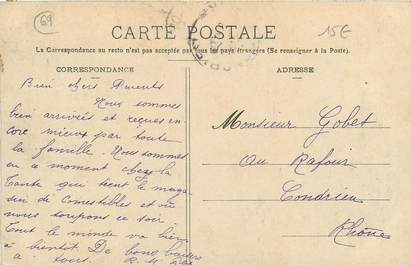 69
15€
CARTE POSTALE
La Correspondance au recto n'est pas acceptée par tous les pays étrangers (Se renseigner à la Poste).
CORRESPONDANCE
ADRESSE
Bien chers Parents
Nous sommes
bien arrivés et reçus en-
core mieux par toute
la famille. Nous sommes
en ce moment chez la
Tante qui tient le maga-
sin de comestibles et où
nous soupons ce soir.
Tout le monde va bien
à bientôt De bons baisers
à tous.
Monsieur Gobet
au Rafour
Condrieu
Rhône